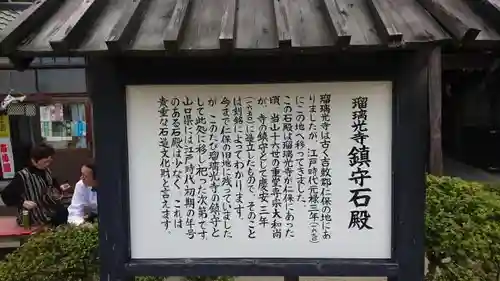 瑠璃光寺鎮守石殿
瑠璃光寺は古く吉敷郡仁保の地にあ
りましたが、江戸時代元禄三年(一六九〇)
にこの地へ移ってきました。
この石殿は瑠璃光寺が仁保にあった
頃、当山十六世の重雲亨宗大和尚
が、寺の鎮守として慶安三年
(一六五〇)に造立したもので、そのこと
は刻銘によってわかります。
今まで仁保の旧地に残っていました
が、このたび瑠璃光寺の鎮守と
して此処に移し祀った次第です。
山口県には江戸時代初期の年号
のある石殿は少なく、これは
貴重な石造文化財と言えます。